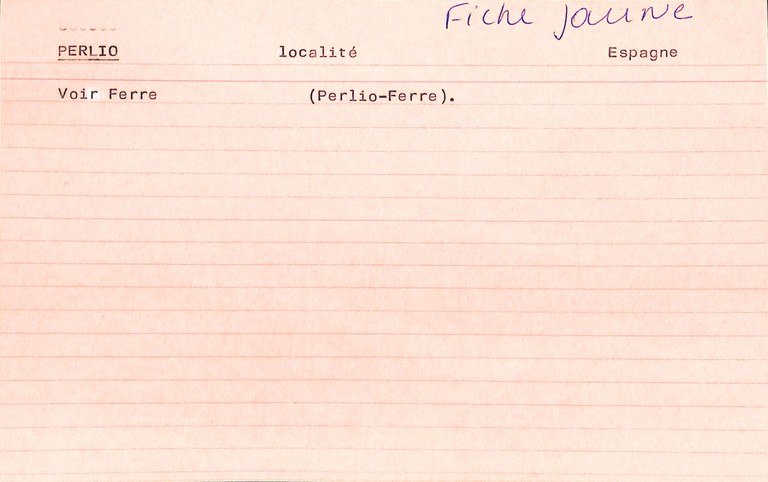 Fiche jaune
PERLIO localité Espagne
Voir Ferre (Perlio-Ferre).